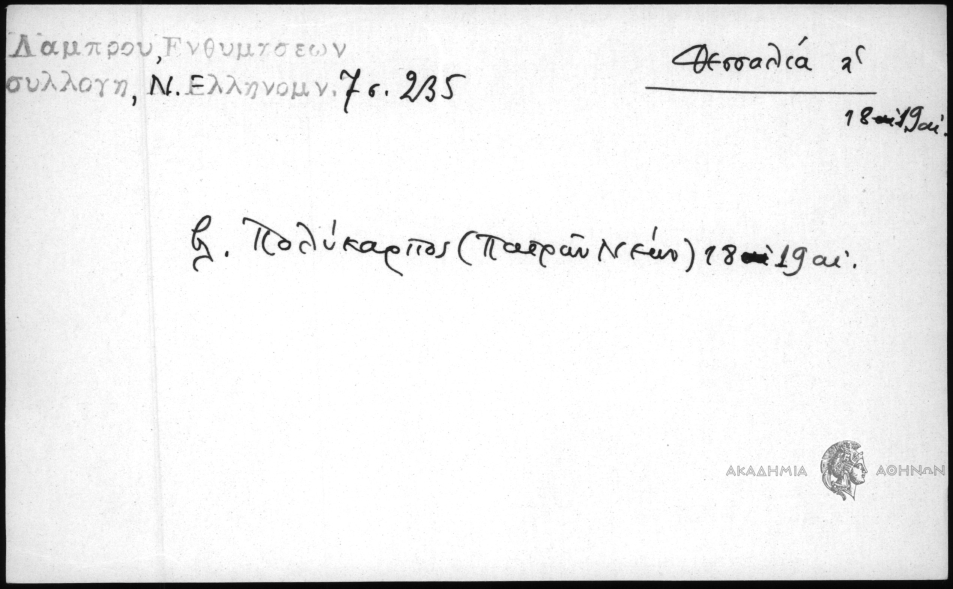 Λαμπρου, Ενθυμησεων
συλλογη, Ν. Ελληνομν. 7 σ. 235
Θεσσαλιά
18 19 αἰ.
βλ. Πολύκαρπος (Πατρῶν Νέων) 18 19 αἰ.
ΑΚΑΔΗΜΙΑ ΑΘΗΝΩΝ